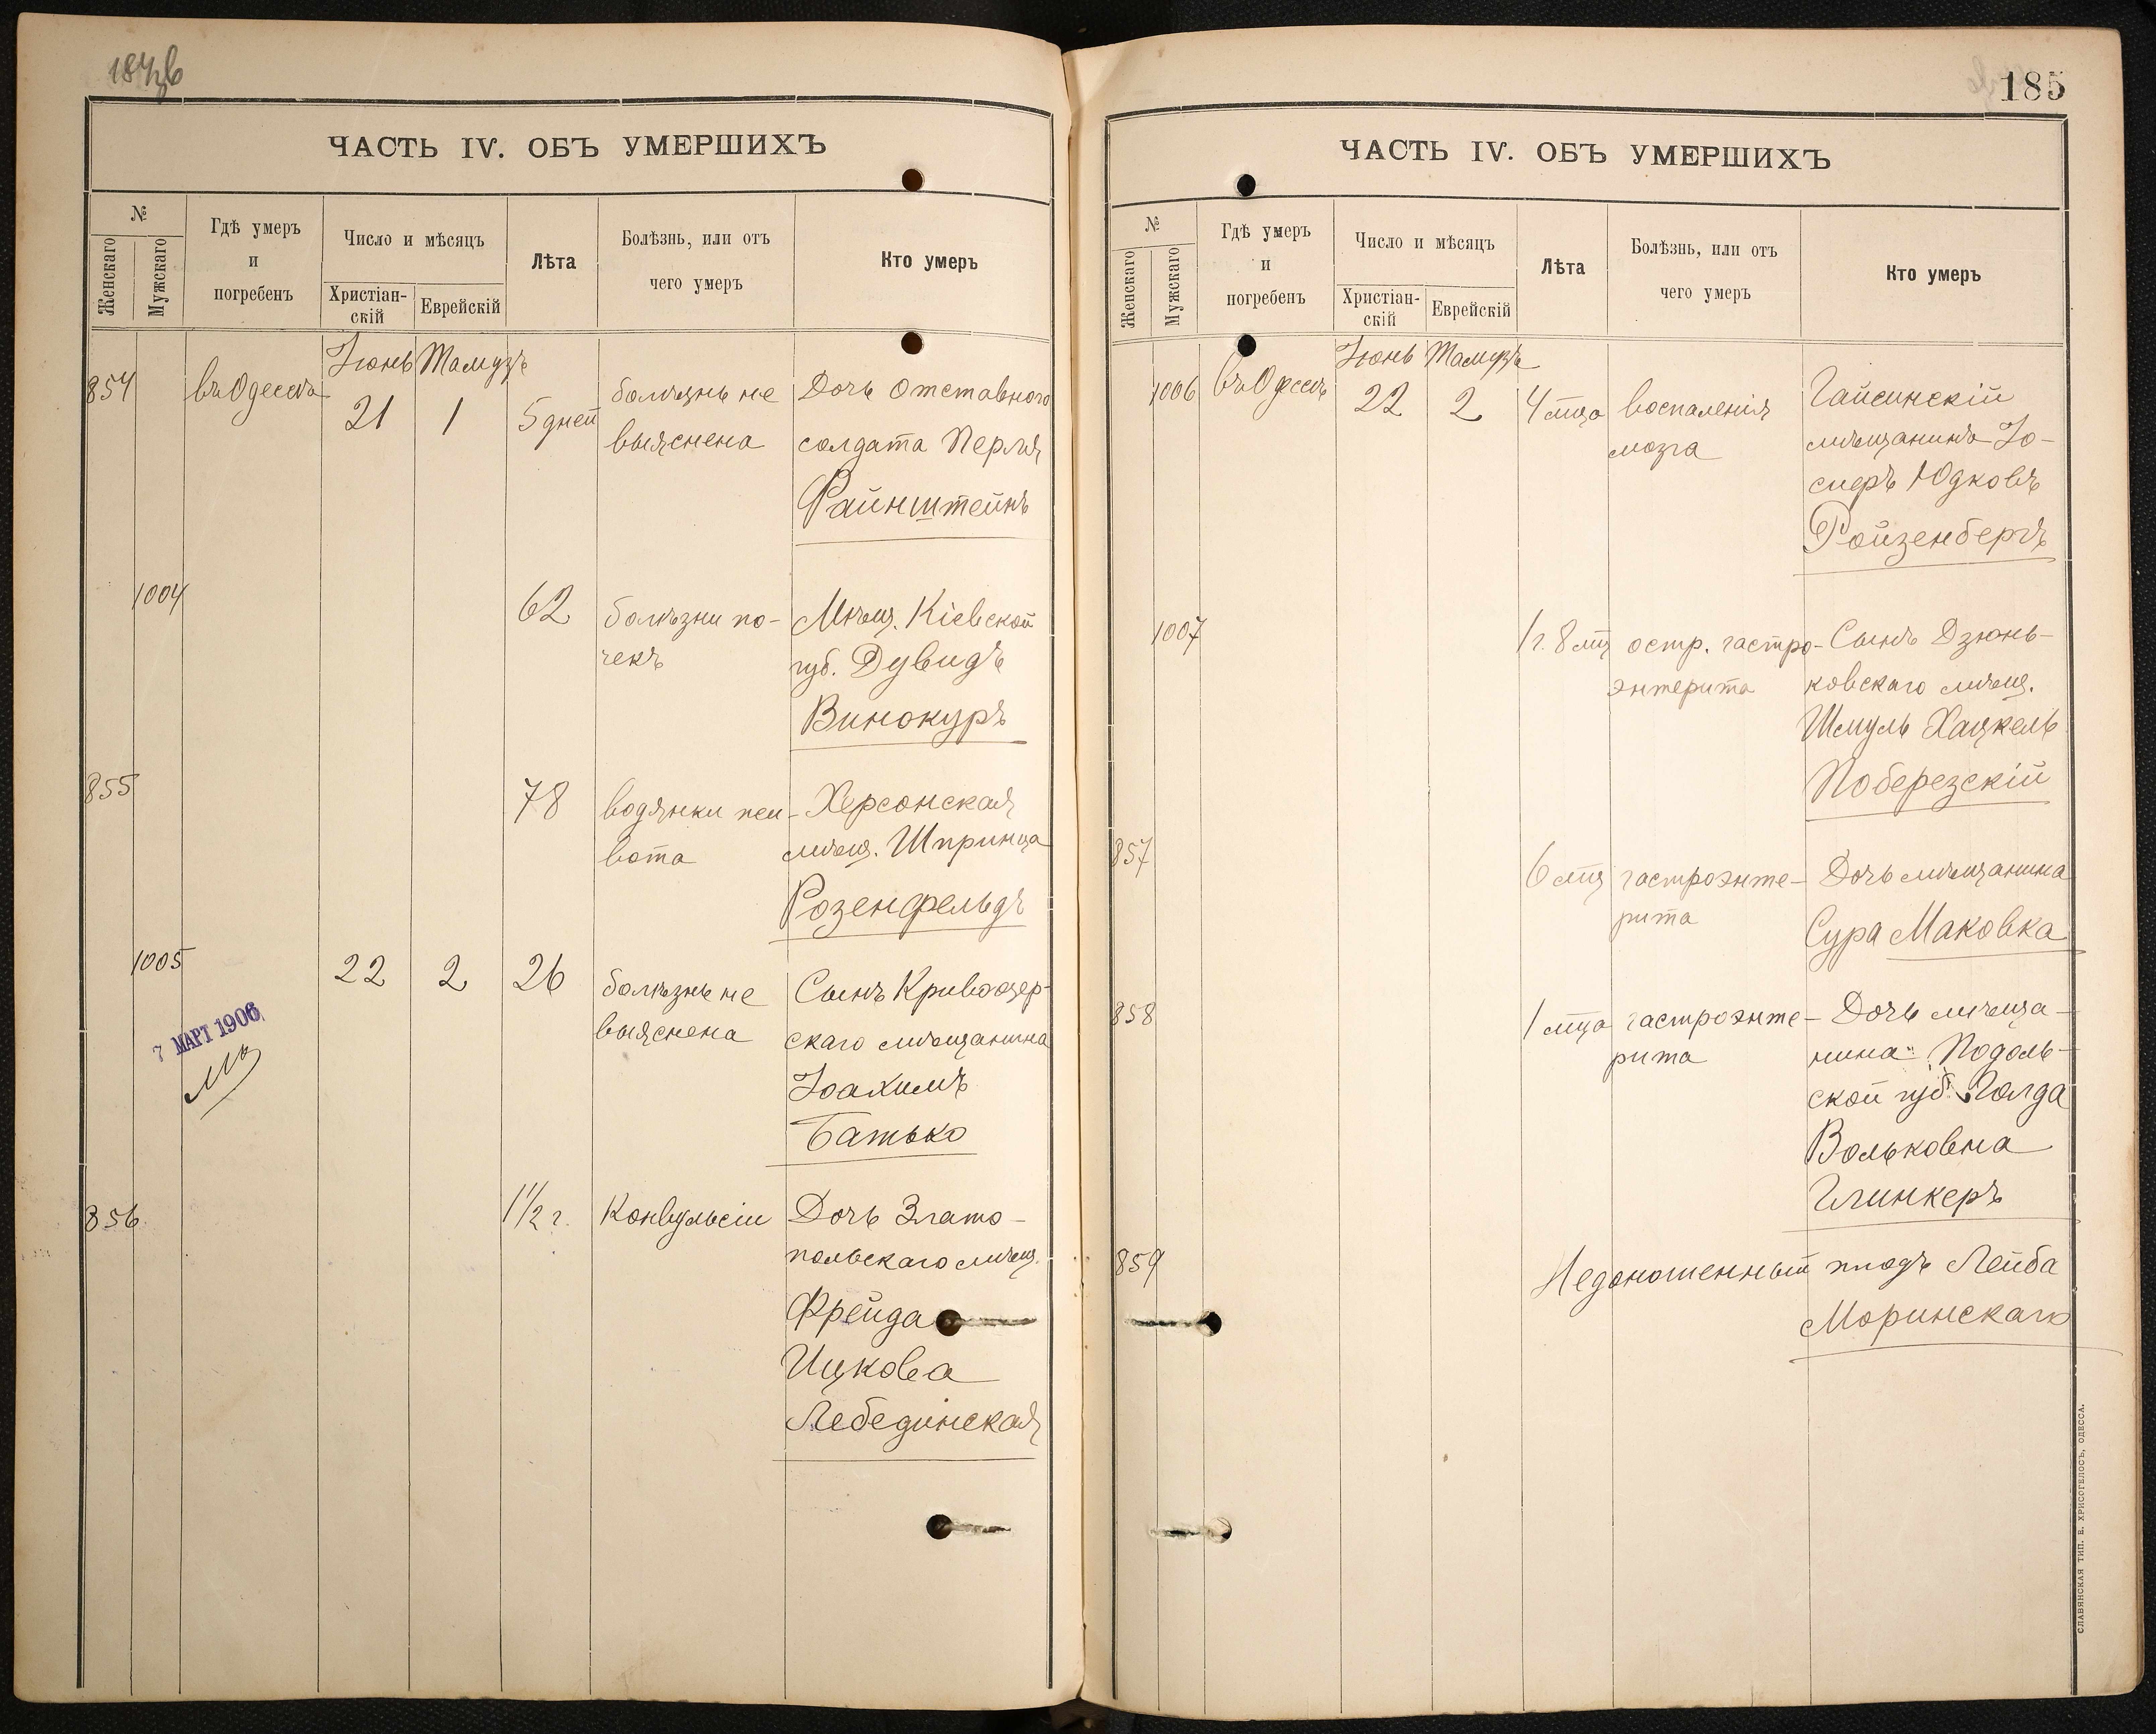 184об
ЧАСТЬ IV. ОБЪ УМЕРШИХЪ
№
Женскаго
Мужскаго
Гдѣ умеръ
и
погребенъ
Число и мѣсяцъ
Христіан-
скій
Еврейскій
Лѣта
Болѣзнь, или отъ
чего умеръ
Кто умеръ
Іюнь Тамузъ
854 въ Одессѣ 21 1 5 дней болѣзнь не Дочь отставного
выяснена солдата Перля
Райнштейнъ
1004 62 болѣзни по- Мѣщ. Кіевской
чекъ губ. Дувидъ
Винокуръ
855 78 водянки жи- Херсонская
вота мѣщ. Шпринца
Розенфельдъ
1005 22 2 26 болѣзнь не Сынъ Кривоозер-
выяснена скаго мѣщанина
Іоахимъ
Батько
7 МАРТ 1906
856 1 1/2 г. Конвульсіи Дочь Злато-
польскаго мѣщ.
Фрейда
Ицкова
Лебединская
185
ЧАСТЬ IV. ОБЪ УМЕРШИХЪ
№
Женскаго
Мужскаго
Гдѣ умеръ
и
погребенъ
Число и мѣсяцъ
Христіан-
скій
Еврейскій
Лѣта
Болѣзнь, или отъ
чего умеръ
Кто умеръ
Іюнь Тамузъ
1006 въ Одессѣ 22 2 4 мца воспаленія Гайсинскій
мозга мѣщанинъ Іо-
сифъ Юдковъ
Ройзенбергъ
1007 1 г. 8 мц остр. гастро- Сынъ Дзюнь-
энтерита ковскаго мѣщ.
Шмуль Хацкель
Поберезскій
857 6 мц гастроэнте- Дочь мѣщанина
рита Сура Маковка
858 1 мца гастроэнте- Дочь мѣща-
рита нина Подоль-
ской губ. Голда
Вольковна
Глинкеръ
859 Недоношенный плодъ Лейба
Моринскаго
СЛАВЯНСКАЯ ТИП. Е. ХРИСОГЕЛОСЪ, ОДЕССА.